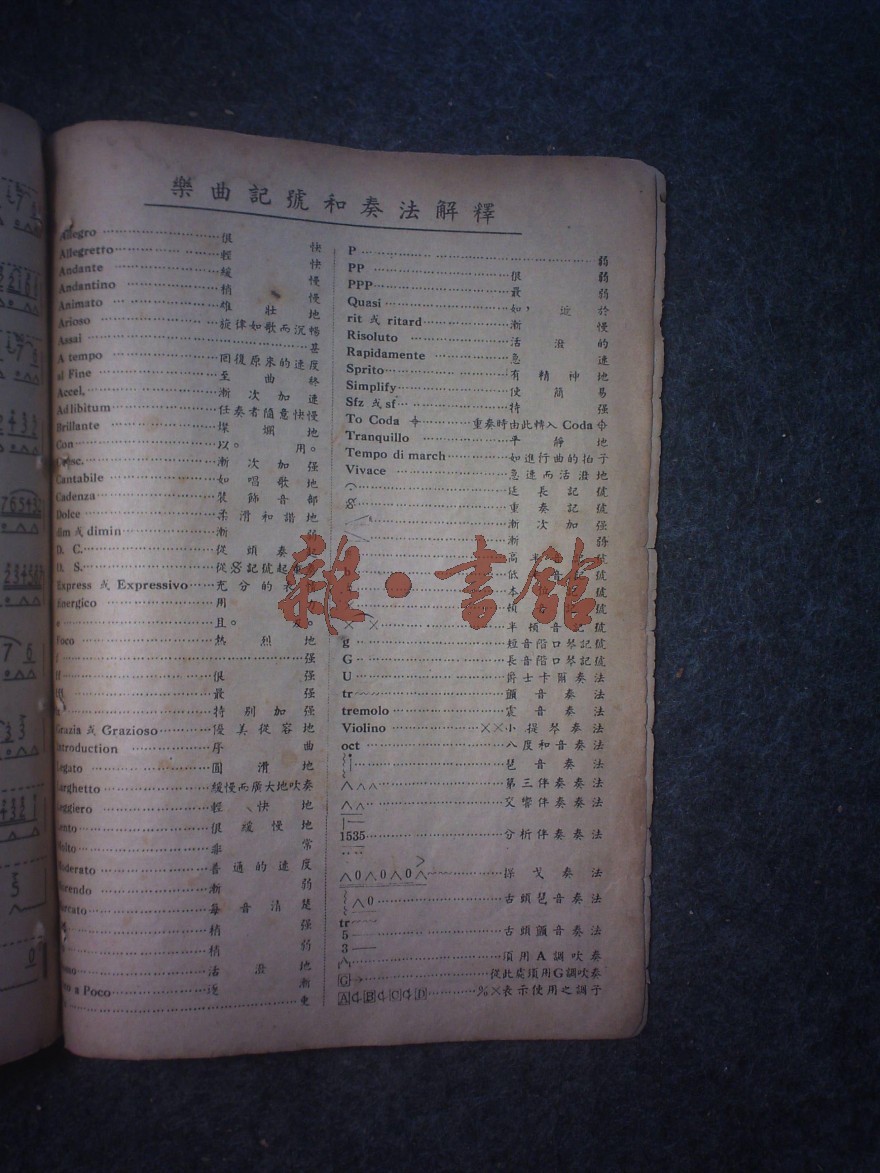 樂曲記號和奏法解釋
Allegro 很快
Allegretto 輕快
Andante 緩慢
Andantino 稍慢
Animato 雄壯地
Arioso 旋律如歌而沉暢
Assai 甚
A tempo 回復原來的速度
al Fine 至曲終
Accel, 漸次加速
Ad libitum 任奏者隨意快慢
Brillante 燦爛地
Con 以。用。
Cresc. 漸次加強
Cantabile 如唱歌地
Cadenza 裝飾音部
Dolce 柔滑和諧地
dim 或 dimin 漸弱
D. C. 從頭奏
D. S. 從𝄋記號起
Express 或 Expressivo 充分的表
Energico 用
e 且。
Foco 熱烈地
f 强
ff 很强
fff 最强
特別加强
Grazia 或 Grazioso 優美從容地
Introduction 序曲
Legato 圓滑地
Larghetto 緩慢而廣大地吹奏
Leggiero 輕快地
Lento 很緩慢地
Molto 非常
Moderato 普通的速度
漸弱
Marcato 每音清楚
稍强
稍弱
活潑地
Poco a Poco 逐漸
更
P 弱
PP 很弱
PPP 最弱
Quasi 如，近於
rit 或 ritard 漸慢
Risoluto 活潑的
Rapidamente 急速
Sprito 有精神地
Simplify 使簡易
Sfz 或 sf 特强
To Coda 𝄌 重奏時由此轉入 Coda 𝄌
Tranquillo 平靜地
Tempo di march 如進行曲的拍子
Vivace 急速而活潑地
𝄐 延長記號
𝄋 重奏記號
漸次加强
漸弱
高半音記號
低半音記號
本
× × 半頓音記號
g 短音階口琴記號
G 長音階口琴記號
U 爵士卡爾奏法
tr 顫音奏法
tremolo 震音奏法
Violino ××小提琴奏法
oct 八度和音奏法
琶音奏法
∧∧∧ 第三伴奏奏法
∧∧ 交響伴奏奏法
1535 分析伴奏奏法
∧0∧0∧0∧ 探戈奏法
∧0 古頭琶音奏法
tr
5 古頭顫音奏法
3
須用A調吹奏
G 從此處須用G調吹奏
A B C D 表示使用之調子
雜·書館